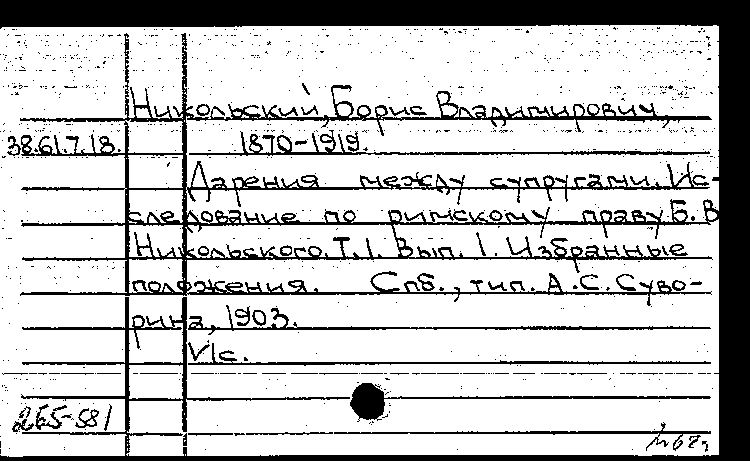 Никольский, Борис Владимирович,
38.61.7.18. 1870-1919.
Дарения между супругами. Ис-
следование по римскому праву Б. В
Никольского. Т. I. Вып. I. Избранные
положения. Спб., тип. А.С. Суво-
рина, 1903.
VIс.
265-581